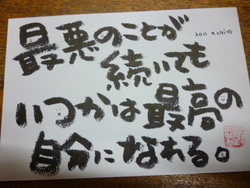 最悪のことが
続いても
いつかは最高の
自分になれる。